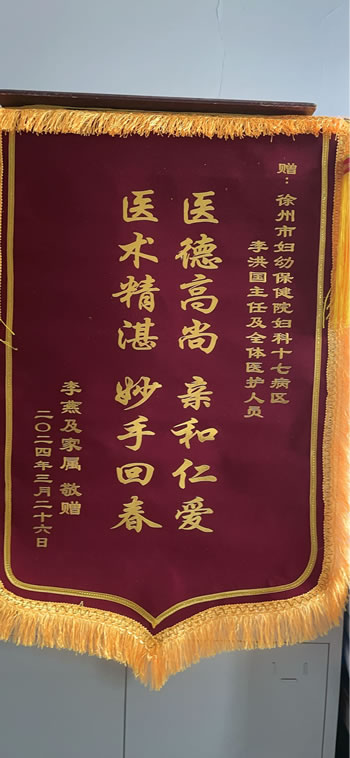 赠：徐州市妇幼保健院妇科十七病区
李洪国主任及全体医护人员
医德高尚 亲和仁爱
医术精湛 妙手回春
李燕及家属 敬赠
二〇二四年三月二十六日